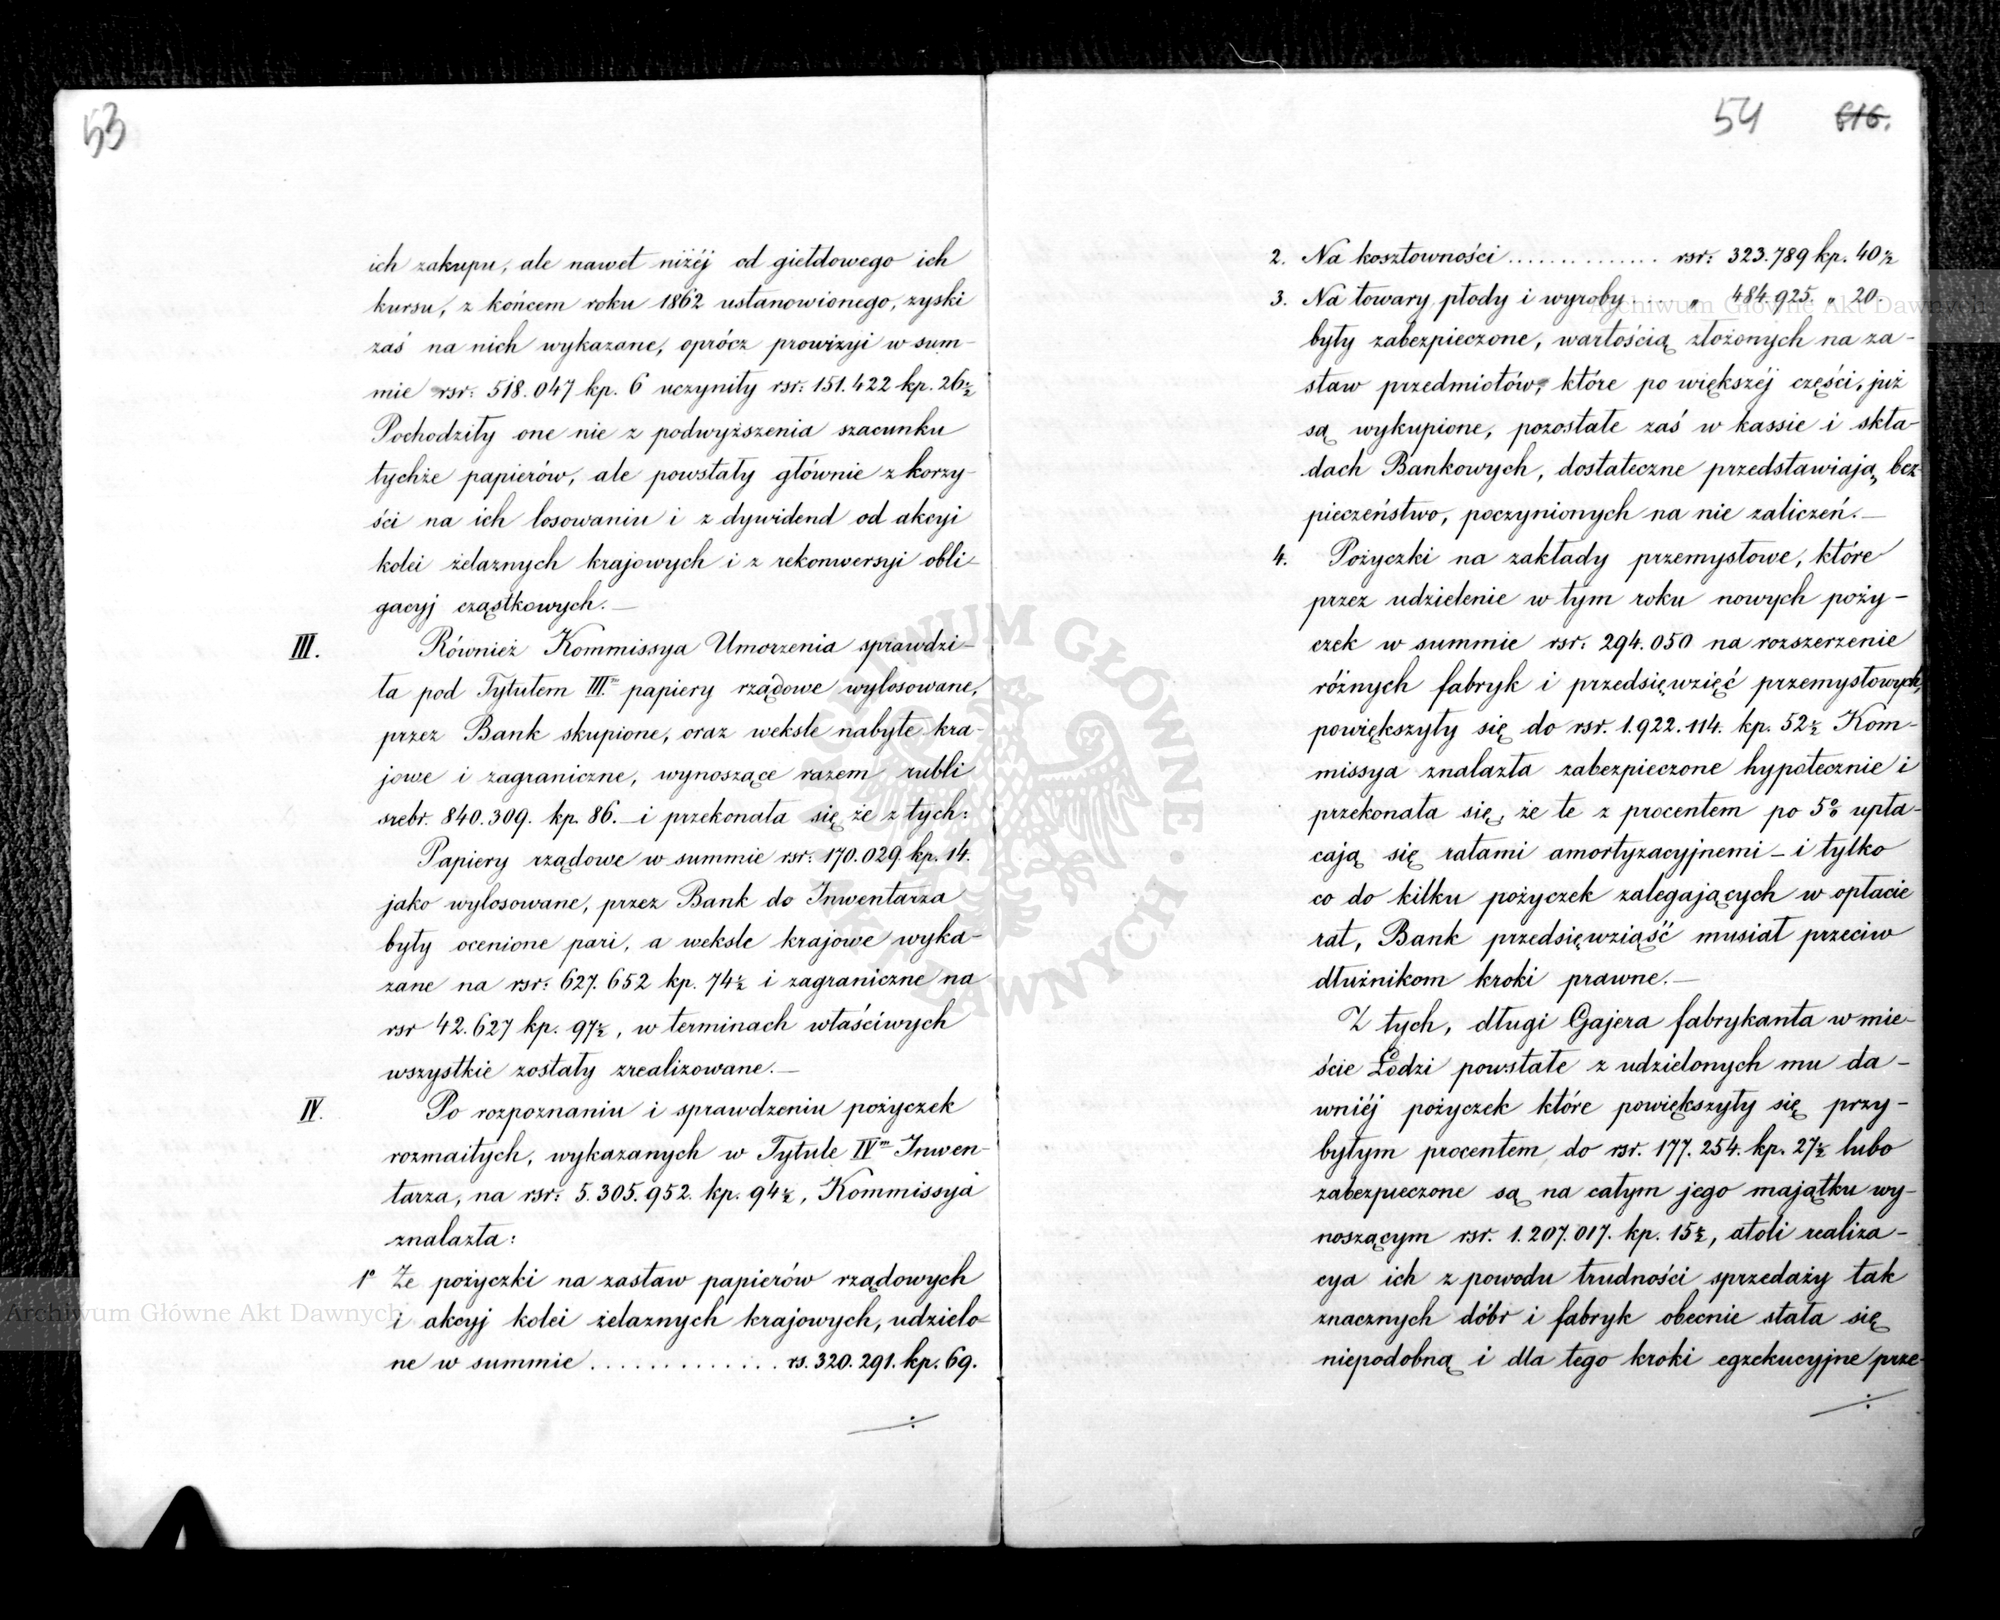 53
ich zakupu, ale nawet niżéj od giełdowego ich
kursu, z końcem roku 1862 ustanowionego, zyski
zaś na nich wykazane, oprócz prowizyi w sum-
mie rsr: 518.047 kp. 6 uczyniły rsr: 151.422 kp. 26½
Pochodziły one nie z podwyższenia szacunku
tychże papierów, ale powstały głównie z korzy-
ści na ich losowaniu i z dywidend od akcyi
kolei żelaznych krajowych i z rekonwersyi obli-
gacyj cząstkowych.—
III. Również Kommissya Umorzenia sprawdzi-
ła pod Tytułem III.m papiery rządowe wylosowane,
przez Bank skupione, oraz weksle nabyte kra-
jowe i zagraniczne, wynoszące razem rubli
srebr. 840.309. kp. 86.— i przekonała się że z tych:
Papiery rządowe w summie rsr: 170.029. kp. 14.
jako wylosowane, przez Bank do Inwentarza
były ocenione pari, a weksle krajowe wyka-
zane na rsr: 627.652 kp. 74½ i zagraniczne na
rsr 42.627 kp. 97½, w terminach właściwych
wszystkie zostały zrealizowane.—
IV. Po rozpoznaniu i sprawdzeniu pożyczek
rozmaitych, wykazanych w Tytule IVm Inwen-
tarza, na rsr: 5.305.952. kp. 94½, Kommissya
znalazła:
1° Że pożyczki na zastaw papierów rządowych
i akcyj kolei żelaznych krajowych, udzielo-
ne w summie ............. rs. 320.291. kp. 69.
54 616.
2. Na kosztowności .............. rsr: 323.789 kp. 40½
3. Na towary, płody i wyroby .... „ 484.925. „ 20.
były zabezpieczone, wartością złożonych na za-
staw przedmiotów, które po większéj części, już
są wykupione, pozostałe zaś w kassie i skła-
dach Bankowych, dostateczne przedstawiają bez-
pieczeństwo, poczynionych na nie zaliczeń.—
4. Pożyczki na zakłady przemysłowe, które
przez udzielenie w tym roku nowych poży-
czek w summie rsr: 294.050 na rozszerzenie
różnych fabryk i przedsięwzięć przemysłowych,
powiększyły się do rsr. 1.922.114. kp. 52½ Kom-
missya znalazła zabezpieczone hypotecznie i
przekonała się, że te z procentem po 5% upła-
cają się ratami amortyzacyjnemi – i tylko
co do kilku pożyczek zalegających w opłacie
rat, Bank przedsięwziąść musiał przeciw
dłużnikom kroki prawne.—
Z tych, długi Gajera fabrykanta w mie-
ście Łodzi powstałe z udzielonych mu da-
wniéj pożyczek które powiększyły się przy-
byłym procentem do rsr. 177.254. kp. 27½ lubo
zabezpieczone są na całym jego majątku wy-
noszącym rsr. 1.207.017. kp. 15½, atoli realiza-
cya ich z powodu trudności sprzedaży tak
znacznych dóbr i fabryk obecnie stała się
niepodobną i dla tego kroki egzekucyjne prze-
ARCHIWUM GŁÓWNE AKT DAWNYCH
Archiwum Główne Akt Dawnych
Archiwum Główne Akt Dawnych